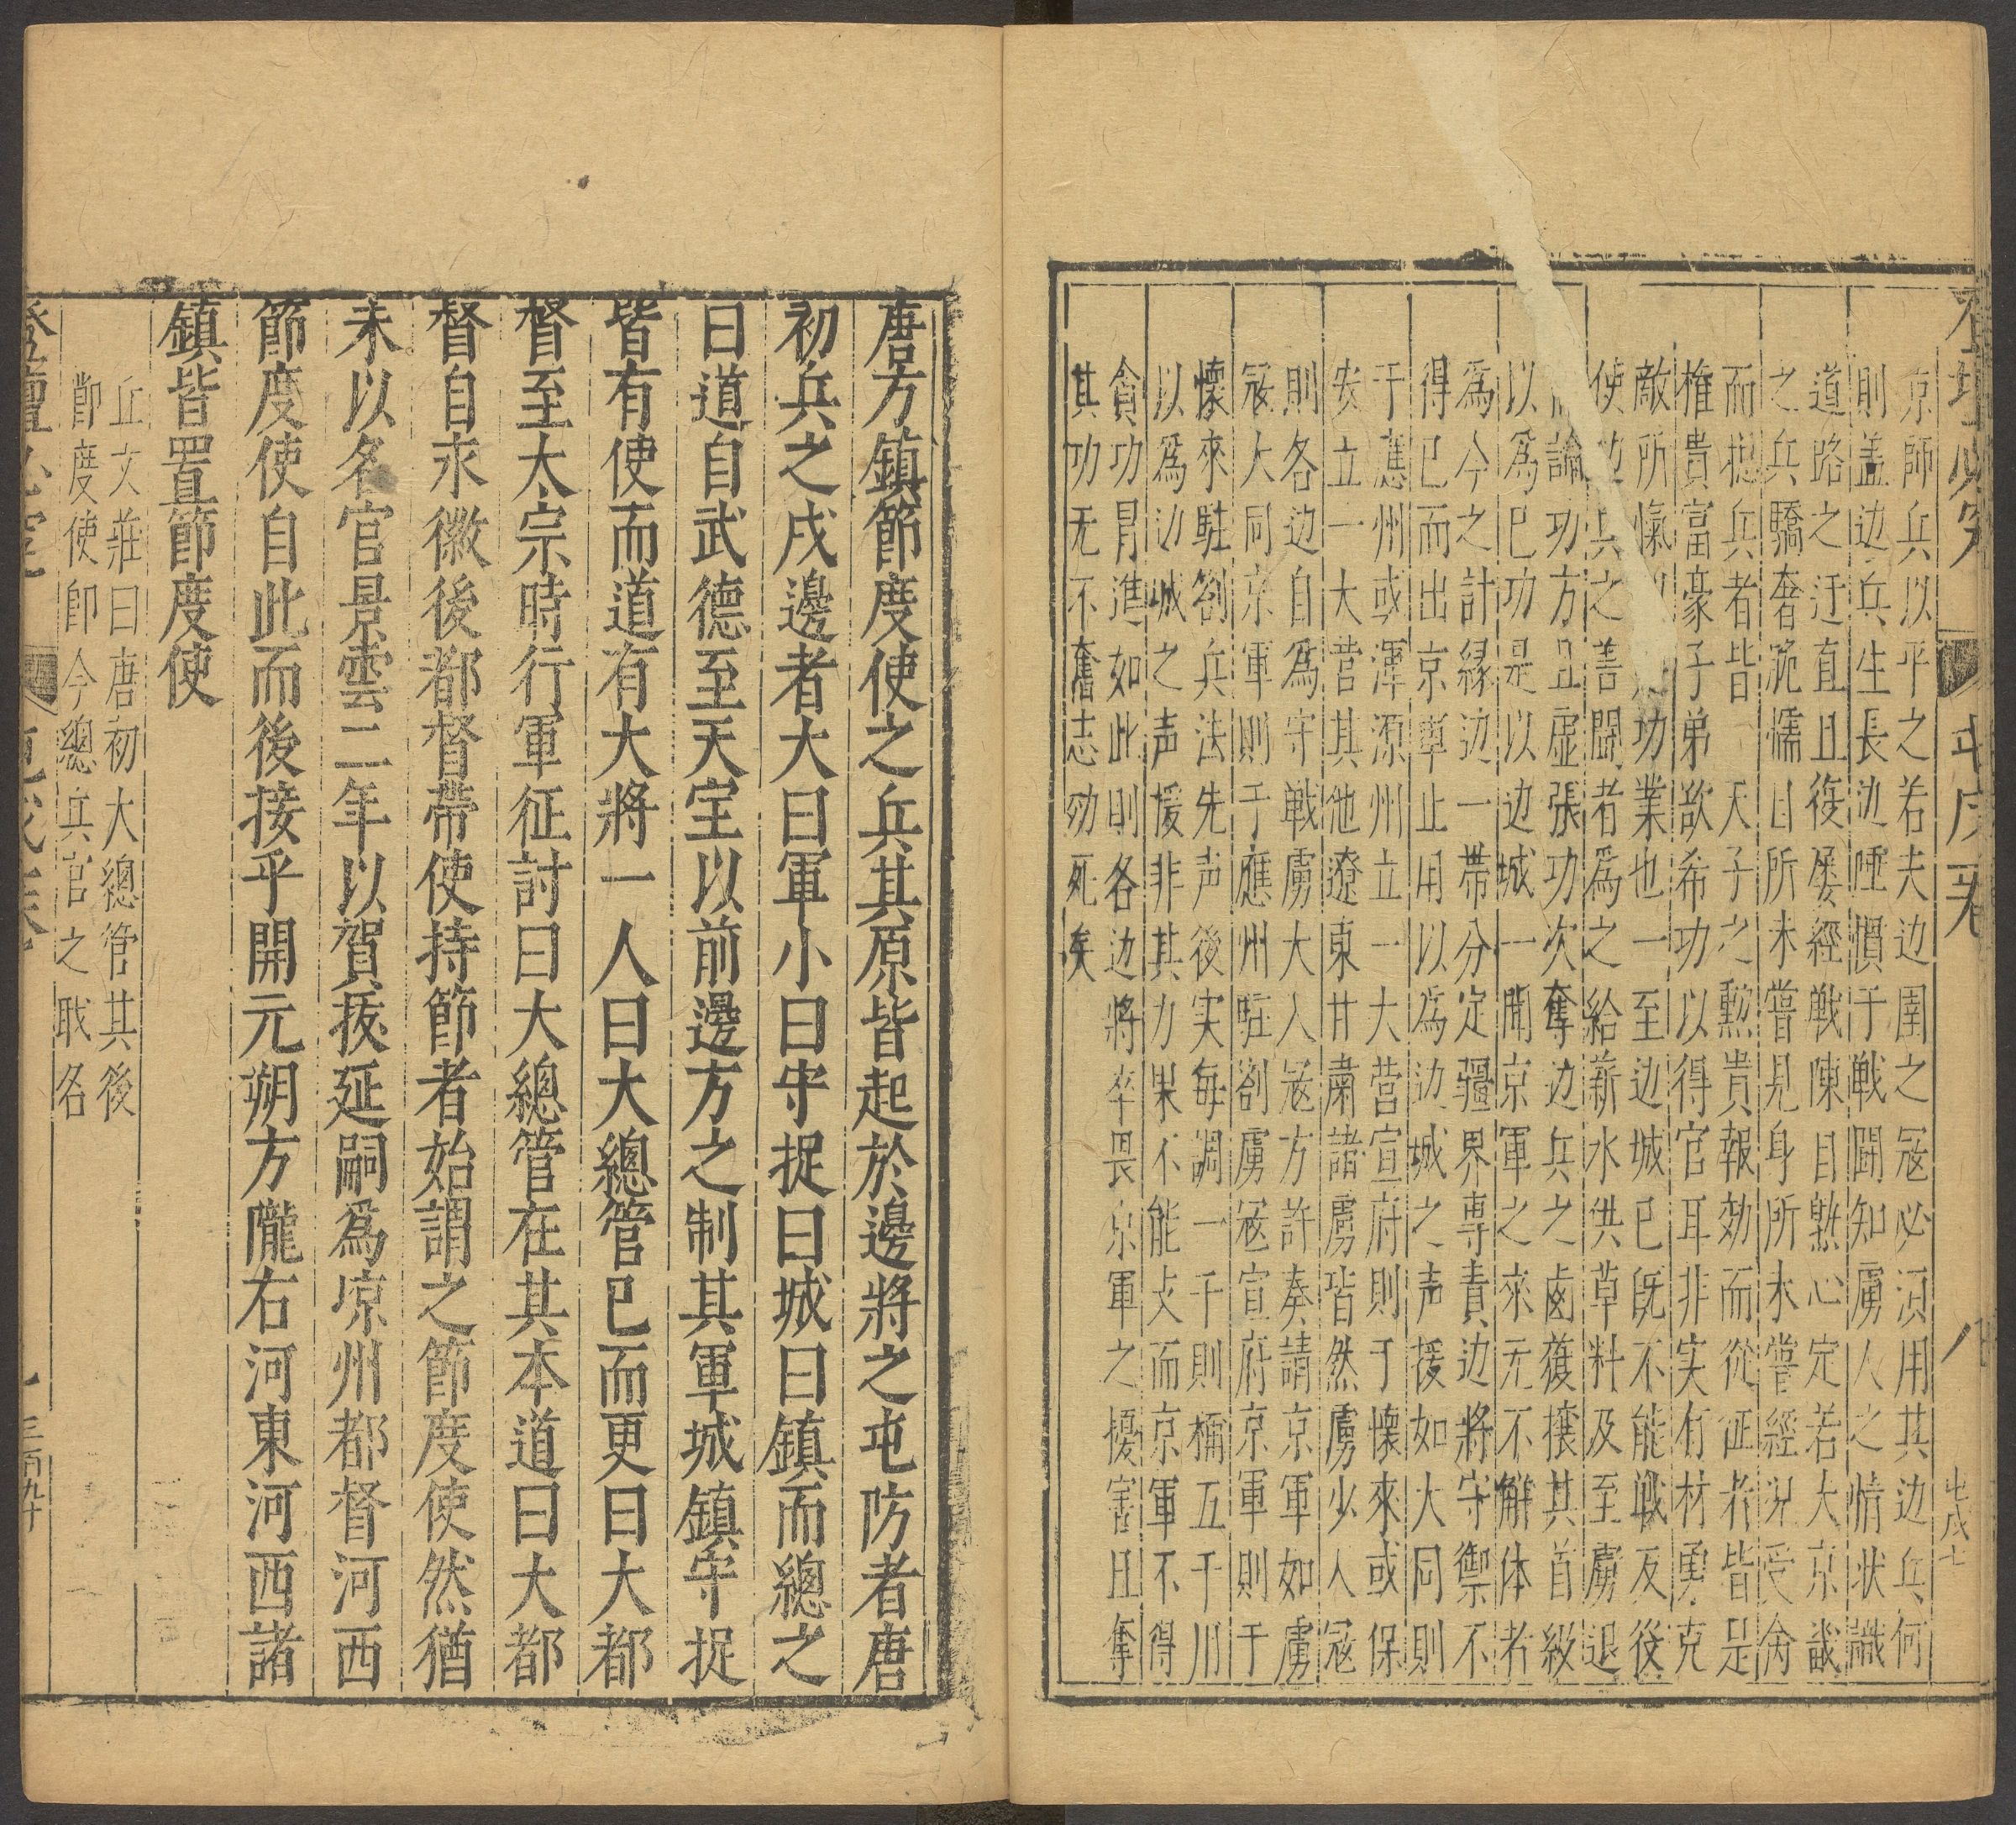 京師兵以平之若夫边圉之冦必湏用其边兵何
則盖边兵生長边陲慣于戦闘知虜人之情状識
道路之迂直且後屡經戦陳目熟心定若夫京畿
之兵驕奢脆懦目所未嘗見身所未嘗經况受命
而揔兵者皆天子之勲貴報効而從征者皆是
権貴富豪子弟欲希功以得官耳非実有材勇克
敵所愾
功業也一至边城已既不能戦及後
使边兵之善闘者爲之給薪水供草料及至虜退
論功方且虚張功次奪边兵之鹵獲攘其首級
以爲已功是以边城一聞京軍之來无不解体者
爲今之計縁边一帶分定疆界專責边将守禦不
得已而出京軍止用以爲边城之声援如大同則
于應州或渾源州立一大营宣府則于懐來或保
安立一大营其他遼東甘肅諸虜皆然虜少人冦
則各边自爲守戦虜大入冦方許奏請京軍如虜
冦大同京軍則于應州駐劄虜冦宣府京軍則于
懐來駐劄兵法先声後実每調一千則稱五千
以爲边城之声援非其力果不能支而京軍不得
貪功冐進如此則各边將卒畏京軍之擾害且奪
其功无不奮志効死矣
屯戍七
唐方鎮節度使之兵其原皆起於邊將之屯防者唐
初兵之戍邊者大曰軍小曰守捉曰城曰鎮而總之
曰道自武德至天宝以前邊方之制其軍城鎮守捉
皆有使而道有大將一人曰大總管已而更曰大都
督至太宗時行軍征討曰大總管在其本道曰大都
督自永徽後都督帶使持節者始謂之節度使然猶
未以名官景雲二年以賀拔延嗣爲凉州都督河西
節度使自此而後接乎開元朔方隴右河東河西諸
鎮皆置節度使
丘文莊曰唐初大總管其後
節度使即今總兵官之職名
三百九十